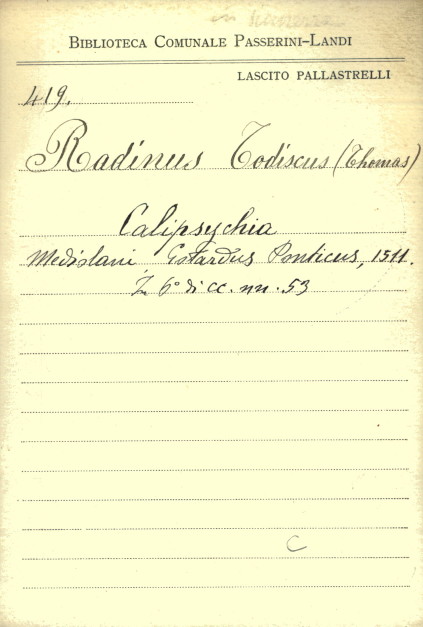 BIBLIOTECA COMUNALE PASSERINI-LANDI
LASCITO PALLASTRELLI
419.
Radinus Todiscus (Thomas)
Calipsychia
Mediolani Gotardus Ponticus, 1511.
in 6° di cc. nn. 53
C